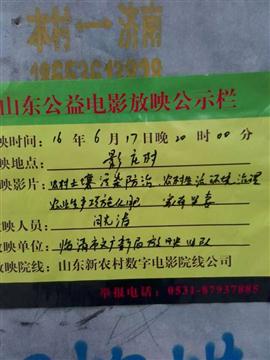 本村一济南
山东公益电影放映公示栏
映时间：16年6月17日晚20时00分
映地点：影庄村
映影片：农村土壤污染防治 农村生活环境治理
农业生产环施肥
放映人员：闫光涛
放映单位：临清市文广新局放映队
放映院线：山东新农村数字电影院线公司
举报电话：0531-87937885